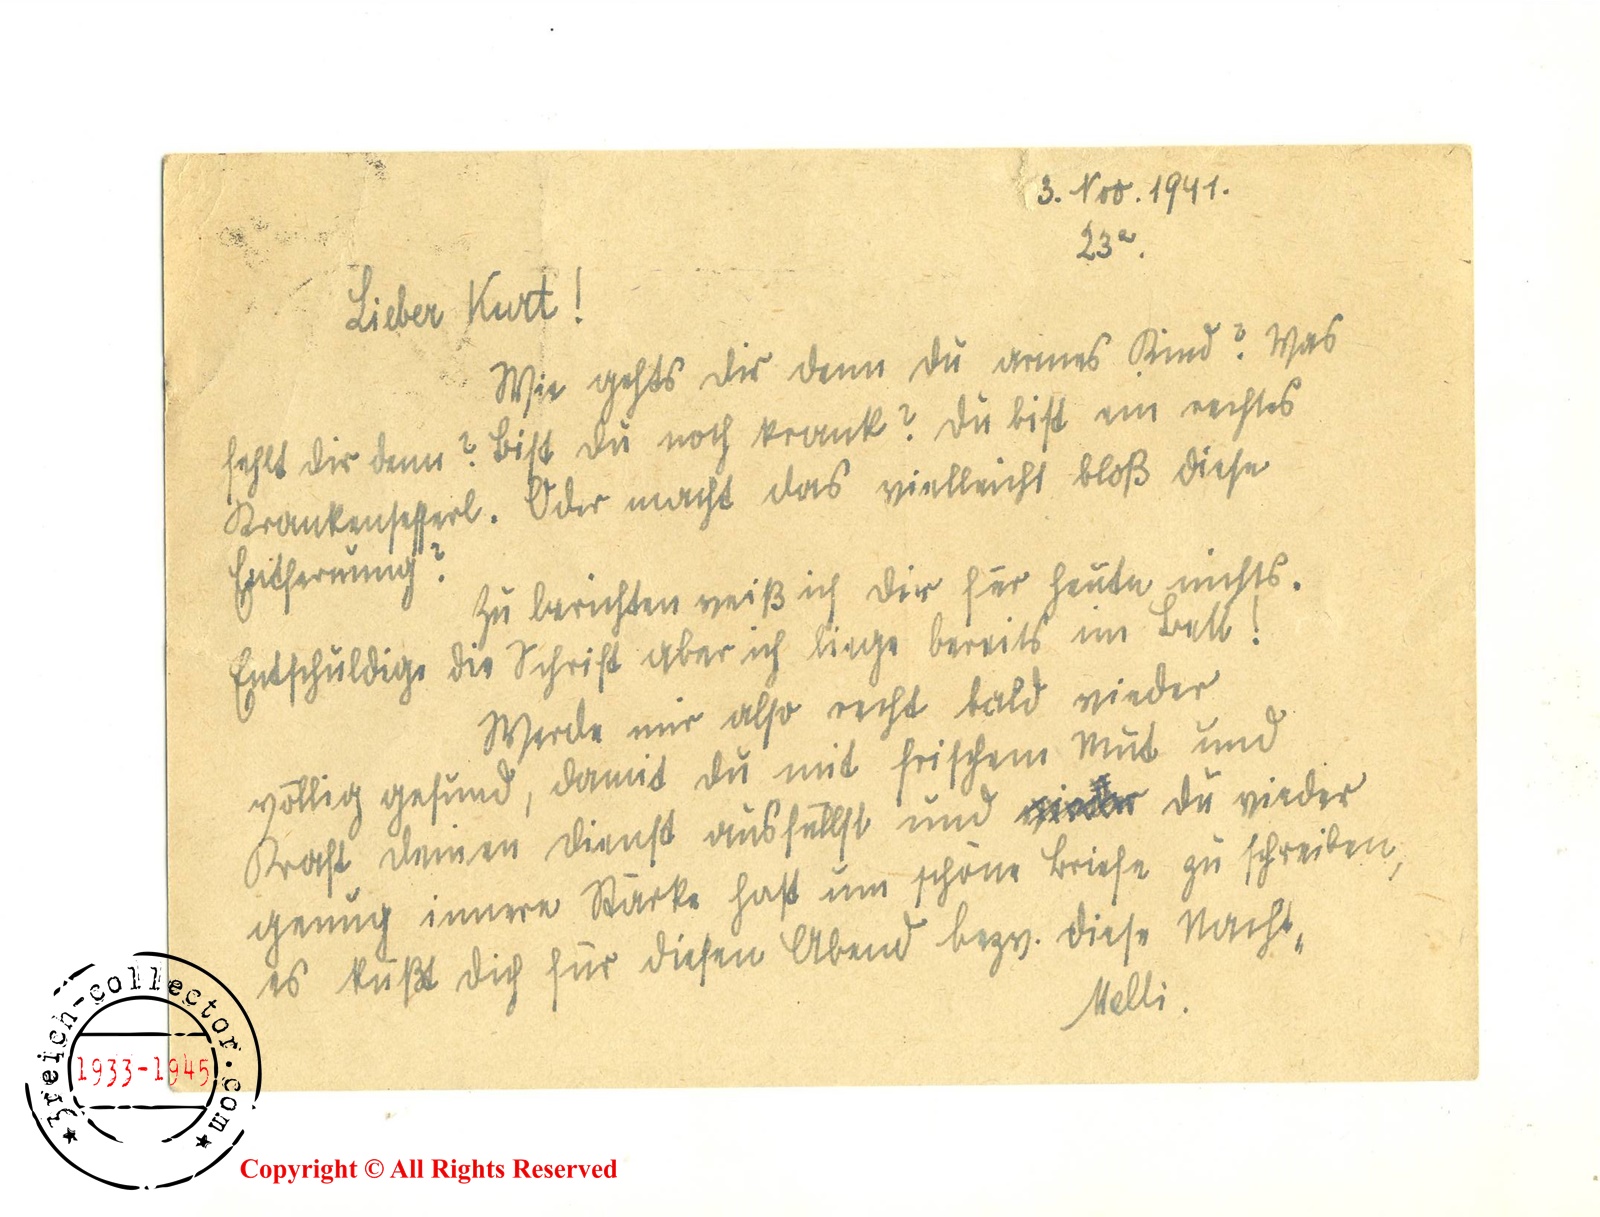 3. Nov. 1941.
23ᵃ.
Lieber Kurt!
Wie gehts dir denn du armes Kind? Was
fehlt dir denn? Bist du noch krank? Du bist ein rechtes
Krankensefferl. Oder macht das vielleicht bloß diese
Entfernung?
Zu berichten weiß ich dir für heute nichts.
Entschuldige die Schrift aber ich liege bereits im Bett!
Werde mir also recht bald wieder
völlig gesund, damit du mit frischem Mut und
Kraft deinen Dienst ausfüllst und du wieder
genug innere Stärke hast um schöne Briefe zu schreiben,
es küßt dich für diesen Abend bezw. diese Nacht
Melli.
3reich-collector.com
1933-1945
Copyright © All Rights Reserved